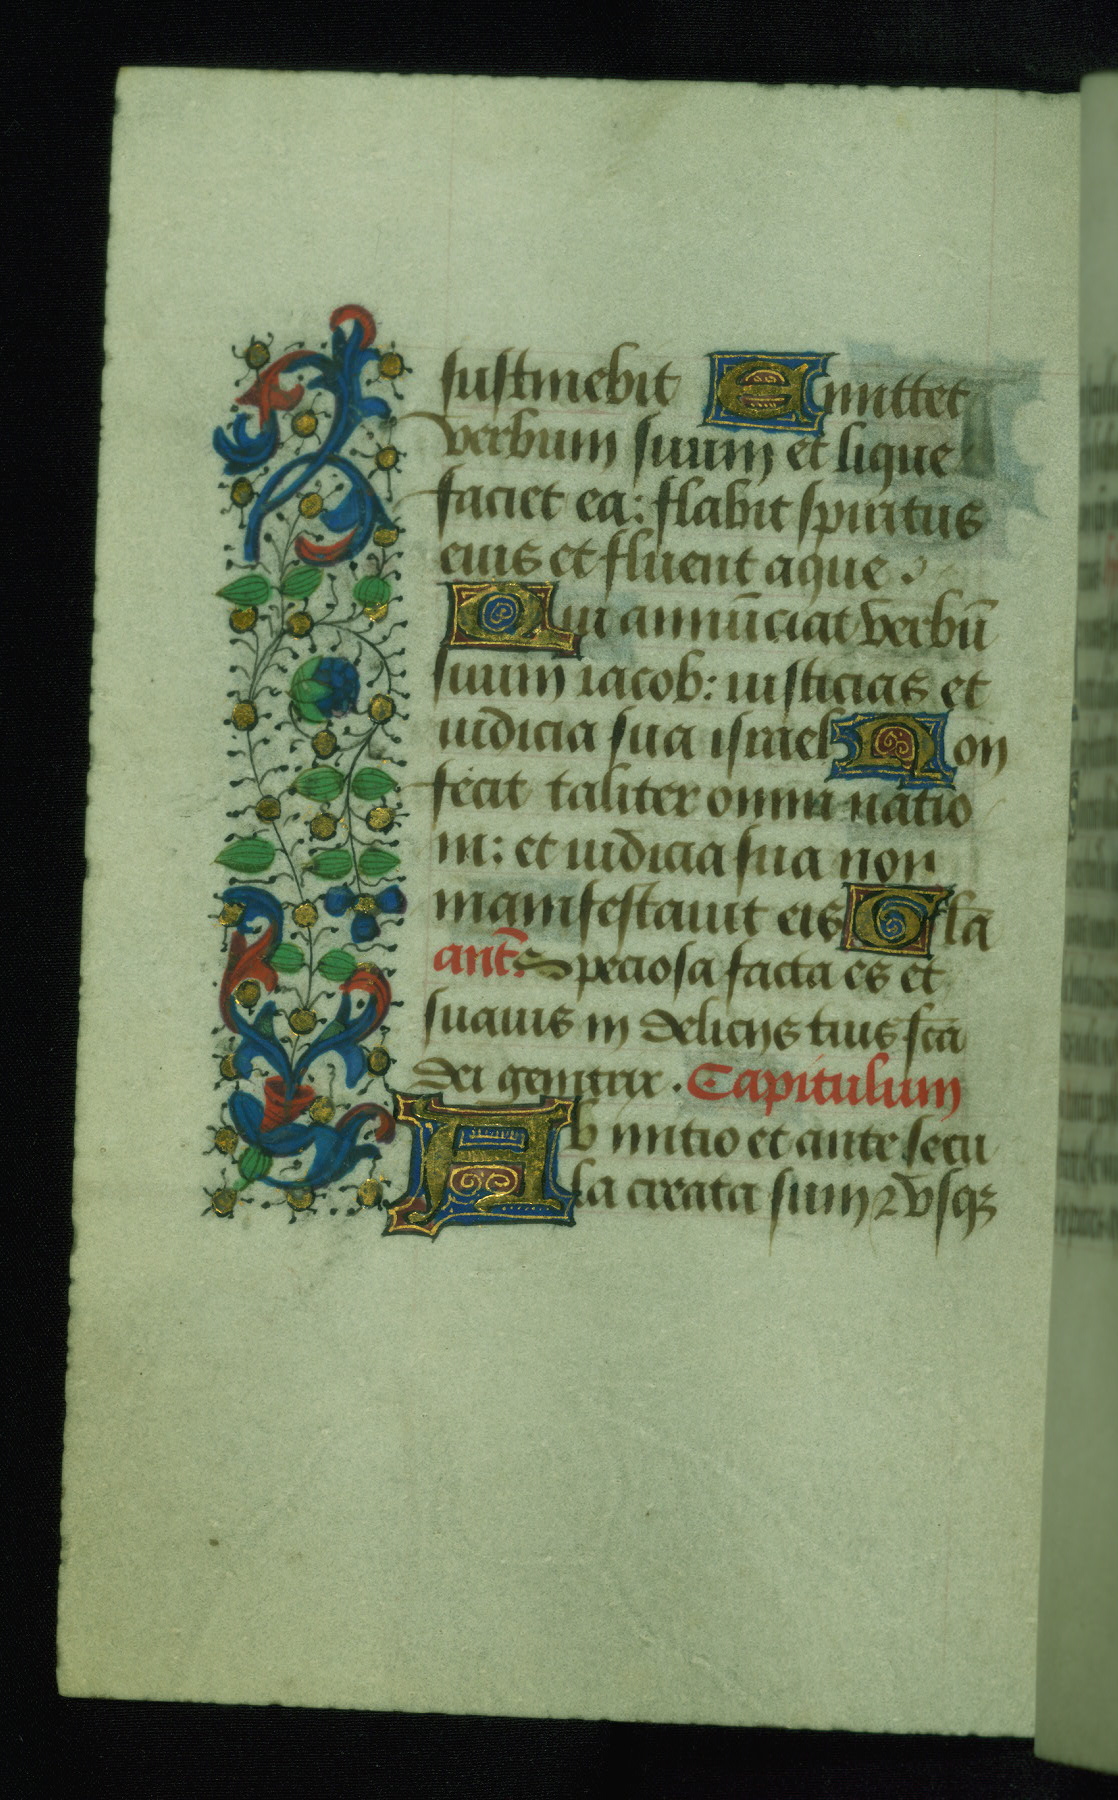 sustinebit Emittet
verbum suum et lique
faciet ea: flabit spiritus
eius et fluent aque.
Qui annūciat verbū
suum iacob: iusticias et
iudicia sua israel Non
fecit taliter omni natio
ni: et iudicia sua non
manifestauit eis Glā
ant̄: Speciosa facta es et
suauis in delicijs tuis scā
dei genitrix. Capitulum
Ab initio et ante secu
la creata sum ⁊ vsqꝫ